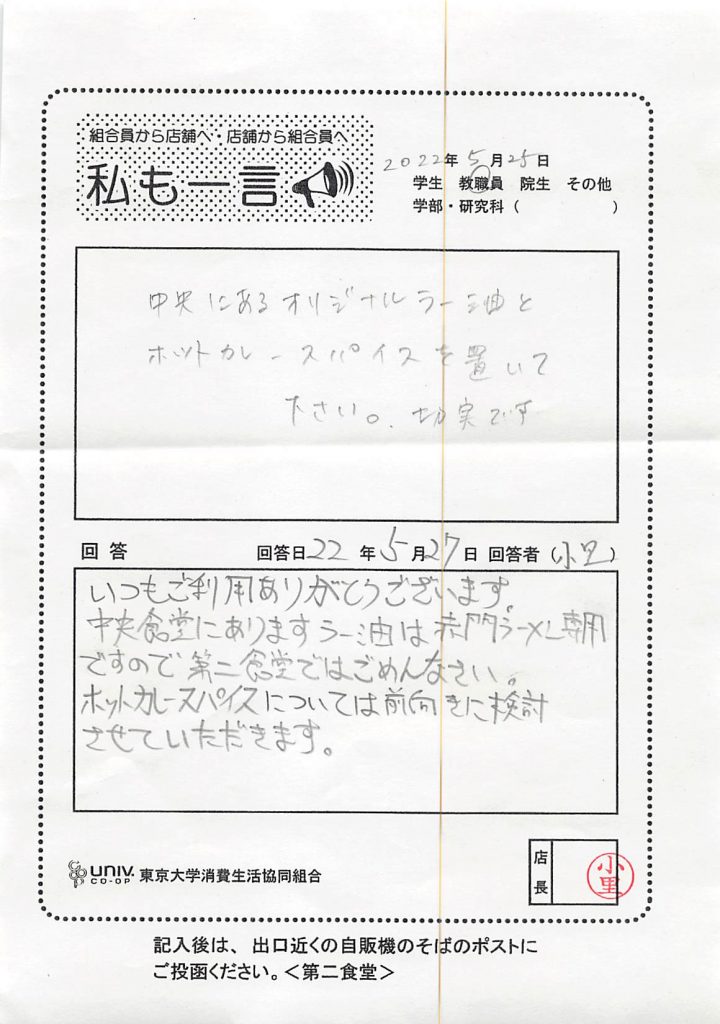 組合員から店舗へ・店舗から組合員へ
私も一言
2022年5月25日
学生 教職員 院生 その他
学部・研究科( )
中央にあるオリジナルラー油と
ホットカレースパイスを置いて
下さい。切実です
回答 回答日22年5月27日 回答者(小里)
いつもご利用ありがとうございます。
中央食堂にありますラー油は赤門ラーメン専用
ですので第二食堂ではごめんなさい。
ホットカレースパイスについては前向きに検討
させていただきます。
UNIV. CO-OP 東京大学消費生活協同組合
店長
小里
記入後は、出口近くの自販機のそばのポストに
ご投函ください。<第二食堂>